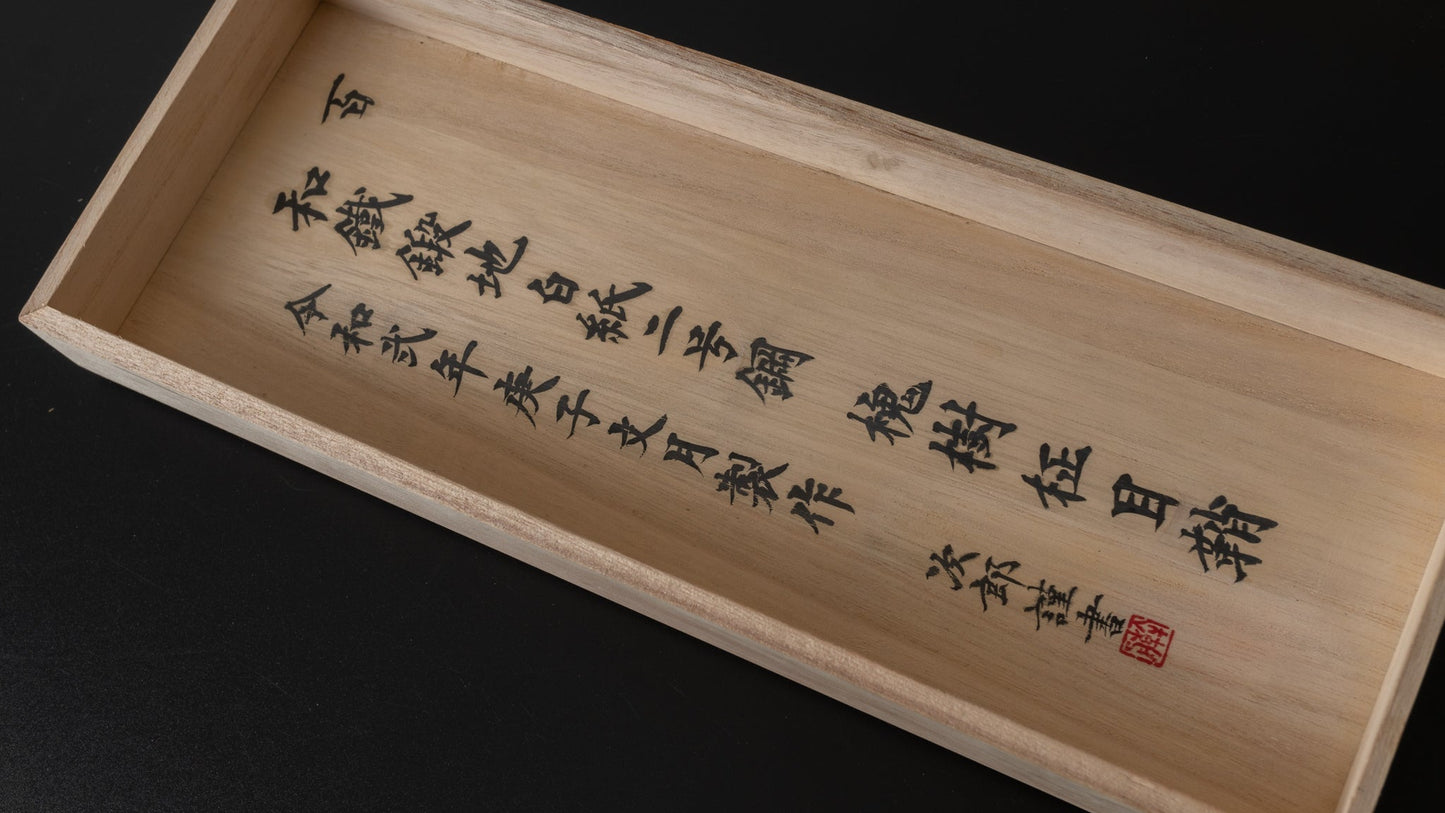 百
和鐵鍛地白紙二号鋼 槐樹柾目鞘
令和弐年庚子文月製作 次郎謹書